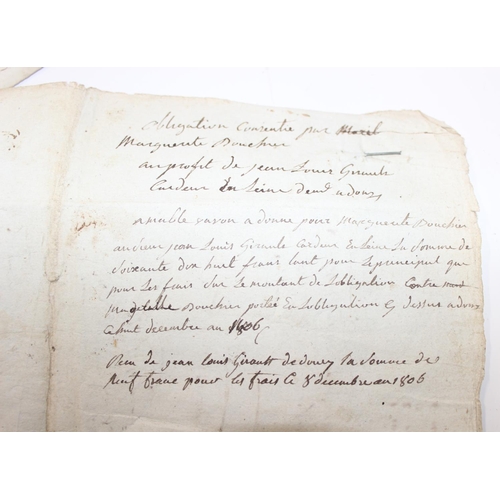 obligation Consentie par Morel
Marguerite Bouchier
au profit de jean Louis Girault
Cardeur En Leine demt a douz
amable varon a donne pour Marguerite Bouchier
au dieu jean Louis Giroule Cardeur En Leine La Somme de
Soixante dix huit frans tant pour Le principal que
pour Les frais Sur Le montant de Lobligation Contre
magdelaine Bouchier portée En Lobligation Cy dessus a douz
Ce huit decembre an 1806
Reçu de jean Louis Girault de douz la Somme de
Neuf franc pour les frais Ce 8 decembre an 1806